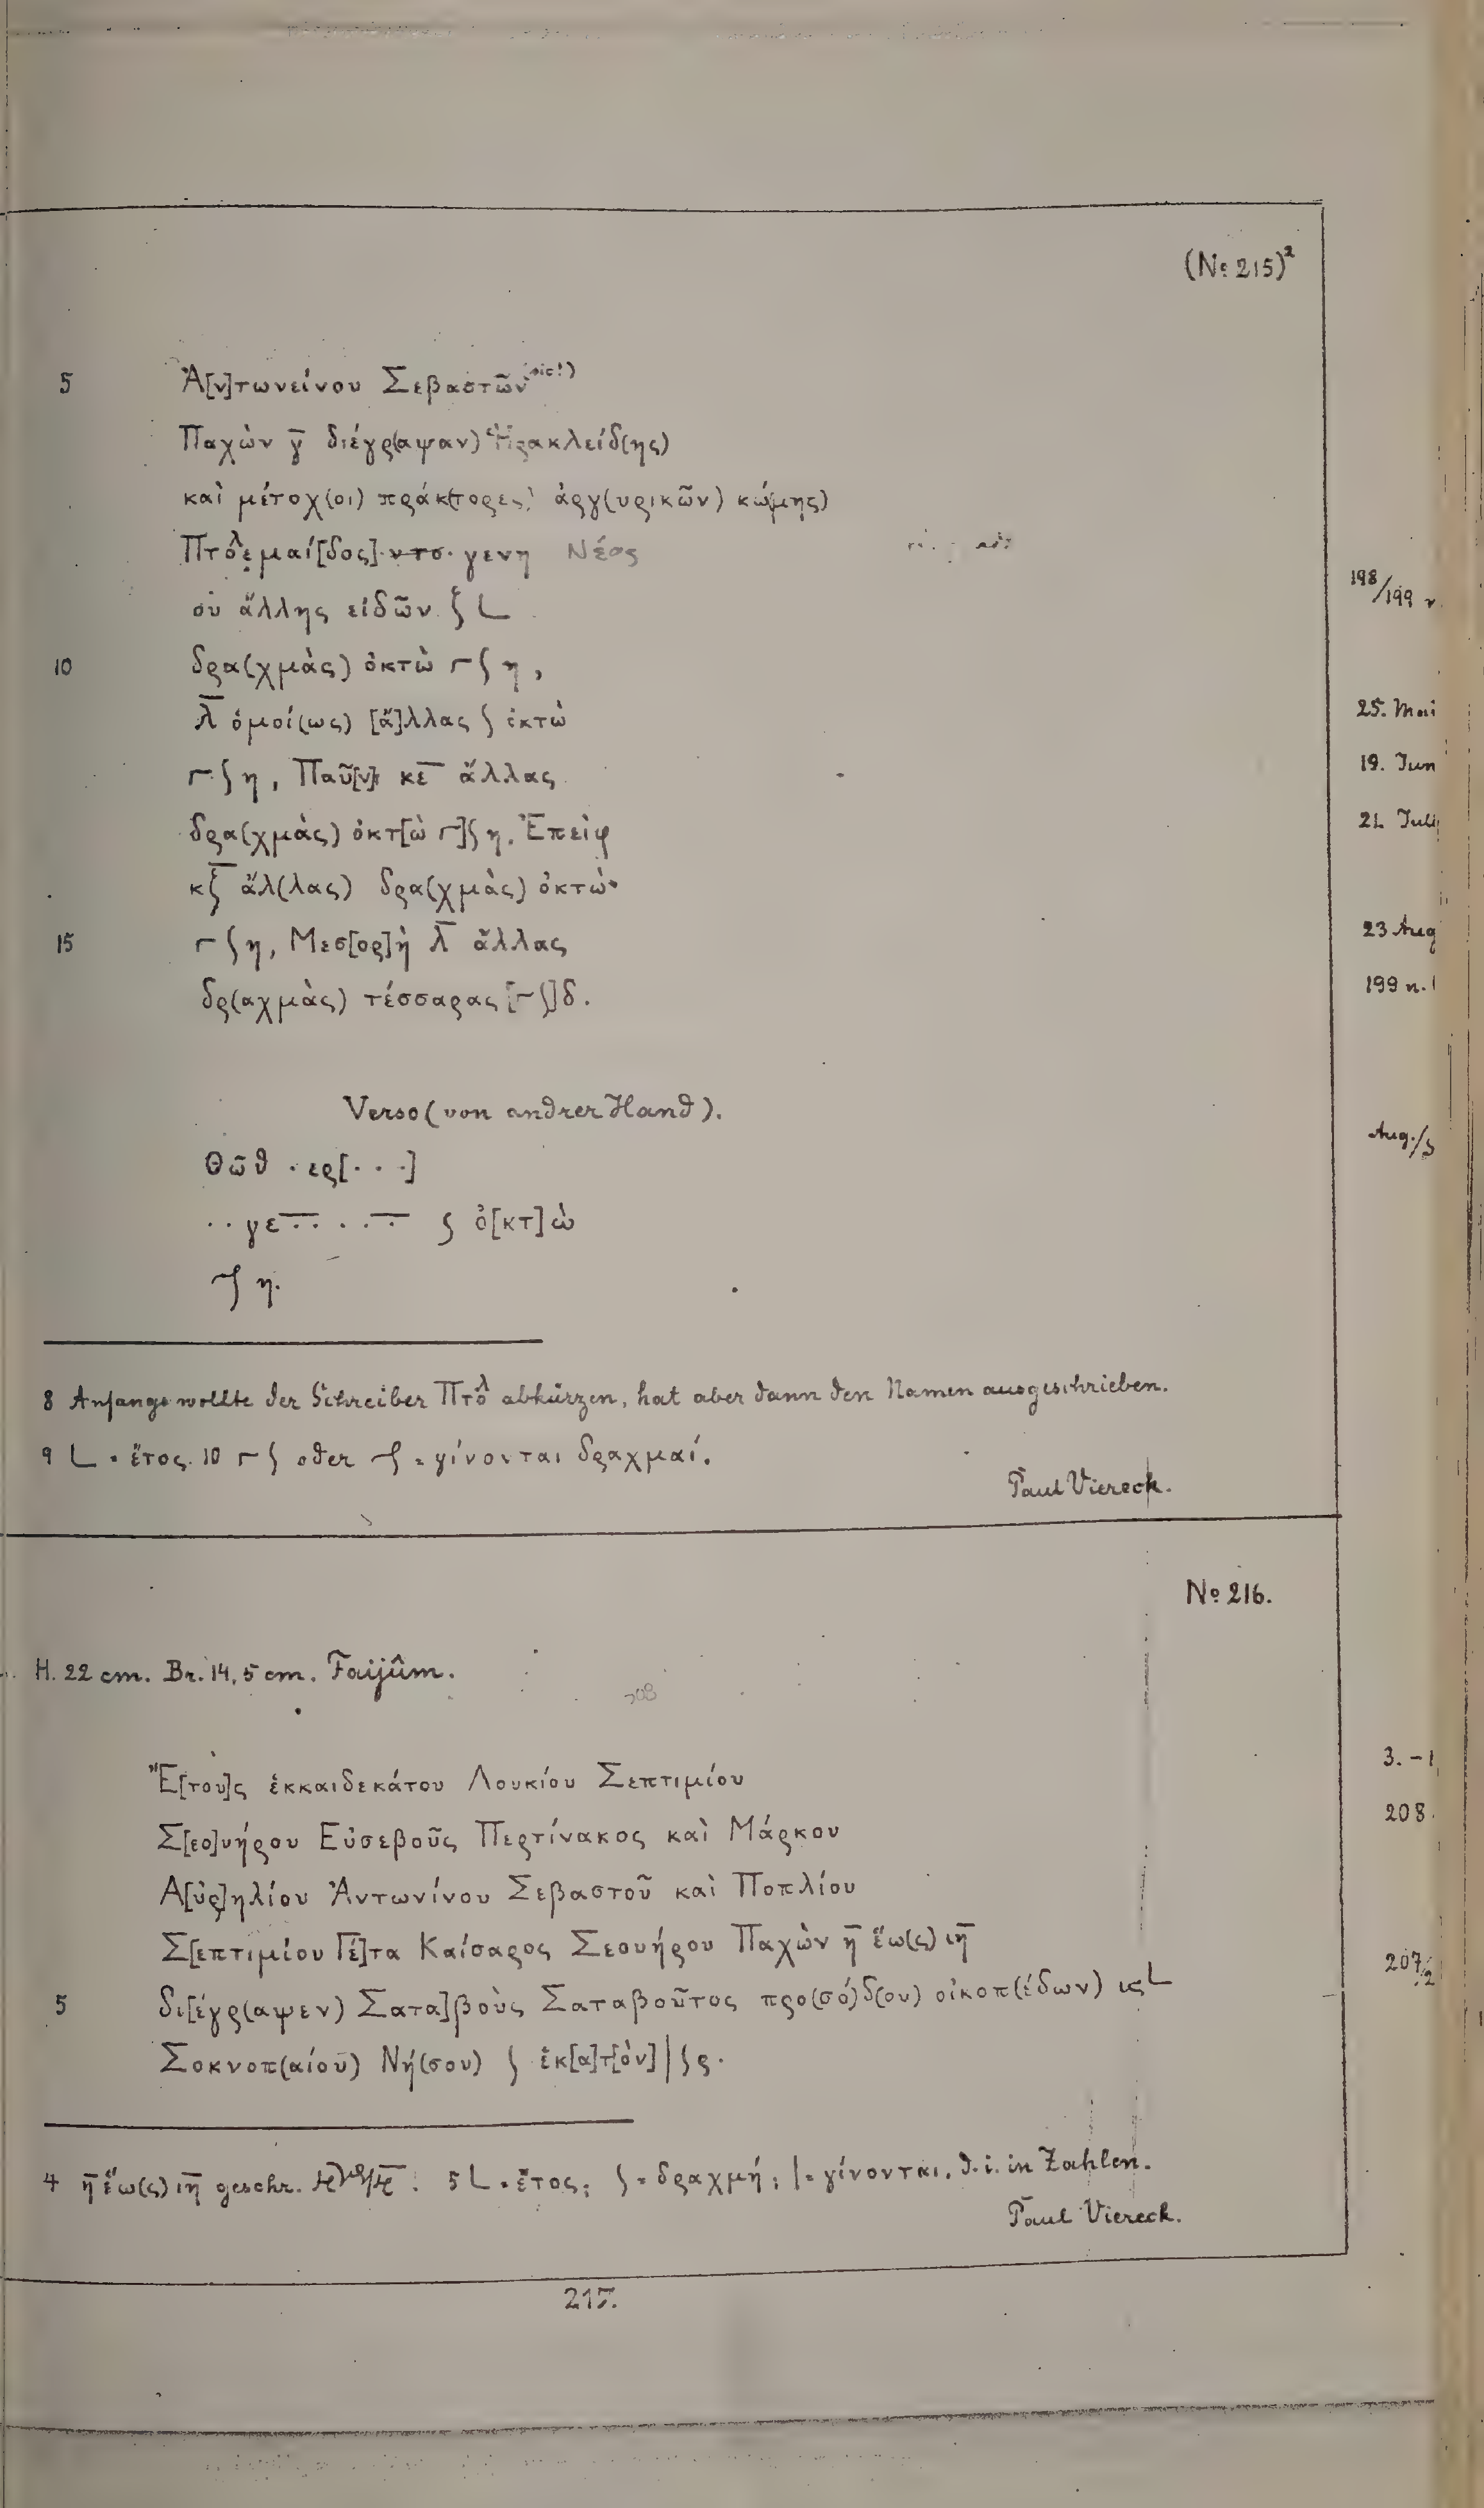 (No 215)²
5 Ἀ[ν]τωνείνου Σεβαστῶν (sic!)
Παχὼν γ̅ διέγρ(αψαν) Ἡρακλείδ(ης)
καὶ μέτοχ(οι) πράκ(τορες) ἀργ(υρικῶν) κώ(μης)
Πτολεμαί[δος] ντσ. γενη Νέας
οὐ ἄλλης εἰδῶν ζ L
198/199
10 δρα(χμὰς) ὀκτὼ ⌐ʃ η,
λ̅ ὁμοί(ως) [ἄ]λλας ʃ ὀκτὼ
25. Mai
⌐ʃ η, Παῦ[ν]ι κε̅ ἄλλας
19. Jun
δρα(χμὰς) ὀκτ[ὼ ⌐]ʃ η. Ἐπεὶφ
21. Juli
κζ̅ ἄλ(λας) δρα(χμὰς) ὀκτὼ
15 ⌐ʃ η, Μεσ[ορ]ὴ λ̅ ἄλλας
23 Aug
δρ(αχμὰς) τέσσαρας [⌐ʃ]δ.
199 n.
Verso (von andrer Hand).
Θῶθ . ερ[...]
Aug./S
..γε.. ... ʃ ὀ[κτ]ὼ
⌐ʃ η.
8 Anfangs wollte der Schreiber Πτολ abkürzen, hat aber dann den Namen ausgeschrieben.
9 L = ἔτος. 10 ⌐ʃ oder ⌐ʃ = γίνονται δραχμαί.
Paul Viereck.
No 216.
H. 22 cm. Br. 14,5 cm. Faijûm.
Ἔ[του]ς ἑκκαιδεκάτου Λουκίου Σεπτιμίου
3. –
Σ[εο]υήρου Εὐσεβοῦς Περτίνακος καὶ Μάρκου
208.
Α[ὐρ]ηλίου Ἀντωνίνου Σεβαστοῦ καὶ Ποπλίου
Σ[επτιμίου Γέ]τα Καίσαρος Σεουήρου Παχὼν η̅ ἕω(ς) ιη̅
207/
5 δι[έγρ(αψεν) Σατα]βοὺς Σαταβοῦτος προ(σό)δ(ου) οἰκοπ(έδων) ις L
Σοκνοπ(αίου) Νή(σου) ʃ ἑκ[α]τ[ὸν] | ʃ ρ.
4 η̅ ἕω(ς) ιη̅ geschr. 5 L = ἔτος; ʃ = δραχμή; | = γίνονται, d. i. in Zahlen.
Paul Viereck.
217.